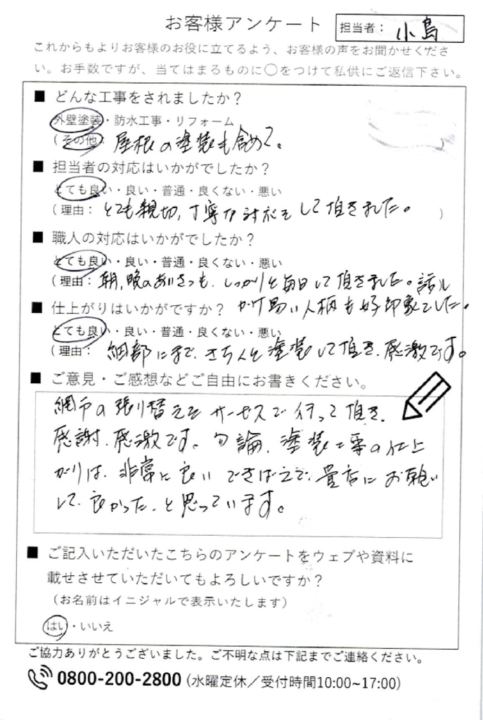 お客様アンケート
担当者： 小島
これからもよりお客様のお役に立てるよう、お客様の声をお聞かせくださ
い。お手数ですが、当てはまるものに○をつけて私供にご返信下さい。
■ どんな工事をされましたか？
外壁塗装・防水工事・リフォーム
(その他: 屋根の塗装も含めて。
■ 担当者の対応はいかがでしたか？
とても良い・良い・普通・良くない・悪い
(理由： とても親切、丁寧な対応をして頂きました。 )
■ 職人の対応はいかがでしたか？
とても良い・良い・普通・良くない・悪い
(理由： 朝、晩のあいさつも、しっかりと毎日して頂きました。話し
かけ易い人柄も好印象でした。
■ 仕上がりはいかがですか？
とても良い・良い・普通・良くない・悪い
(理由： 細部にまで、きちんと塗装して頂き、感激です。
■ ご意見・ご感想などご自由にお書きください。
網戸の張り替えをサービスで行って頂き、
感謝、感激です。勿論、塗装工事の仕上
がりは、非常に良いできばえで、貴店にお願い
して、良かった、と思っています。
■ ご記入いただいたこちらのアンケートをウェブや資料に
載せさせていただいてもよろしいですか？
(お名前はイニシャルで表示いたします)
はい・いいえ
ご協力ありがとうございました。ご不明な点は下記までご連絡ください。
0800-200-2800 (水曜定休／受付時間10:00~17:00)